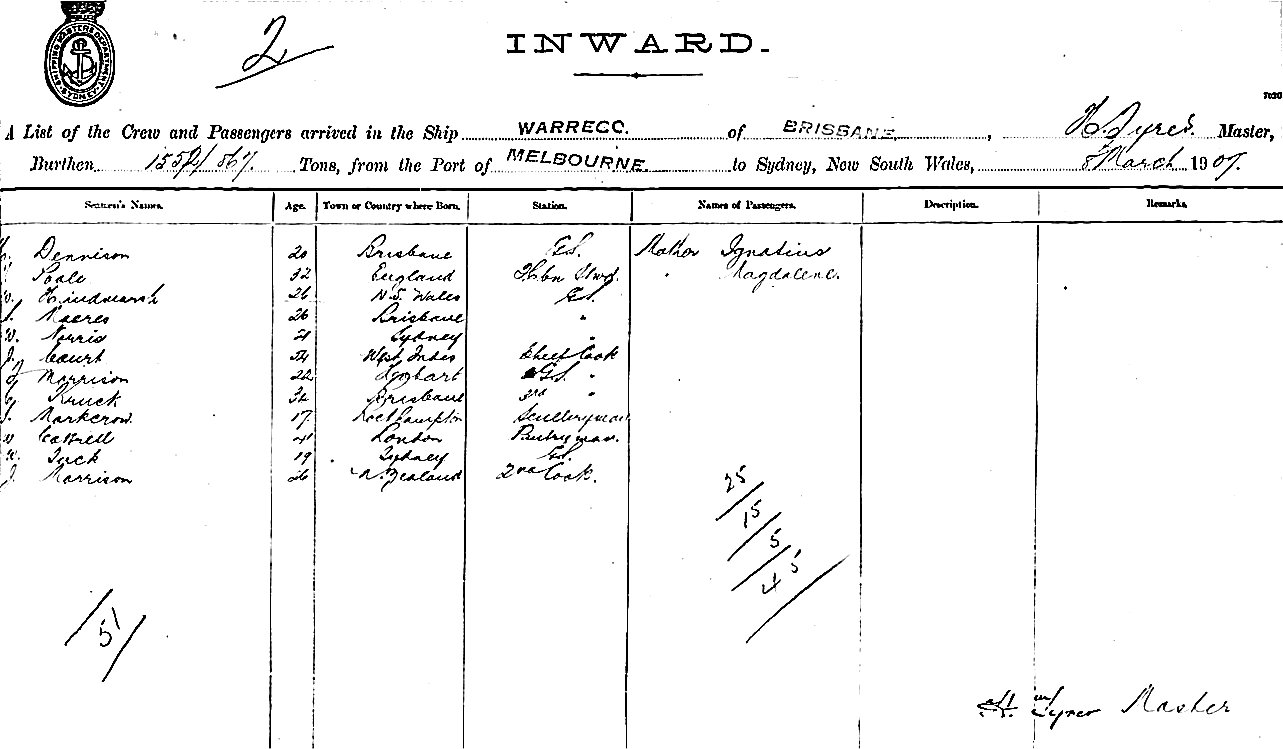 SHIPPING MASTERS DEPARTMENT SYDNEY
2
INWARD.
7020
A List of the Crew and Passengers arrived in the Ship WARREGO. of BRISBANE, Master,
Burthen Tons, from the Port of MELBOURNE to Sydney, New South Wales, 8 March 1907.
Seamen's Names. Age. Town or Country where Born. Station. Names of Passengers. Description. Remarks.
Dennison 20 Brisbane G.S. Mother Ignatius
32 England " Magdalene.
W. Hindmarsh 26 N.S. Wales G.S.
26 Brisbane "
W. Norris 21 Sydney "
J. Court 54 West Indies Chief Cook
Morrison 22 Hobart G.S. "
Kruck 32 Brisbane 3rd "
Markcrow 17 Rockhampton Scullery man
41 London Pantry man.
W. Tuck 19 Sydney G.S.
J. Morrison 26 N. Zealand 2nd Cook.
25
15
5
45
51
Master